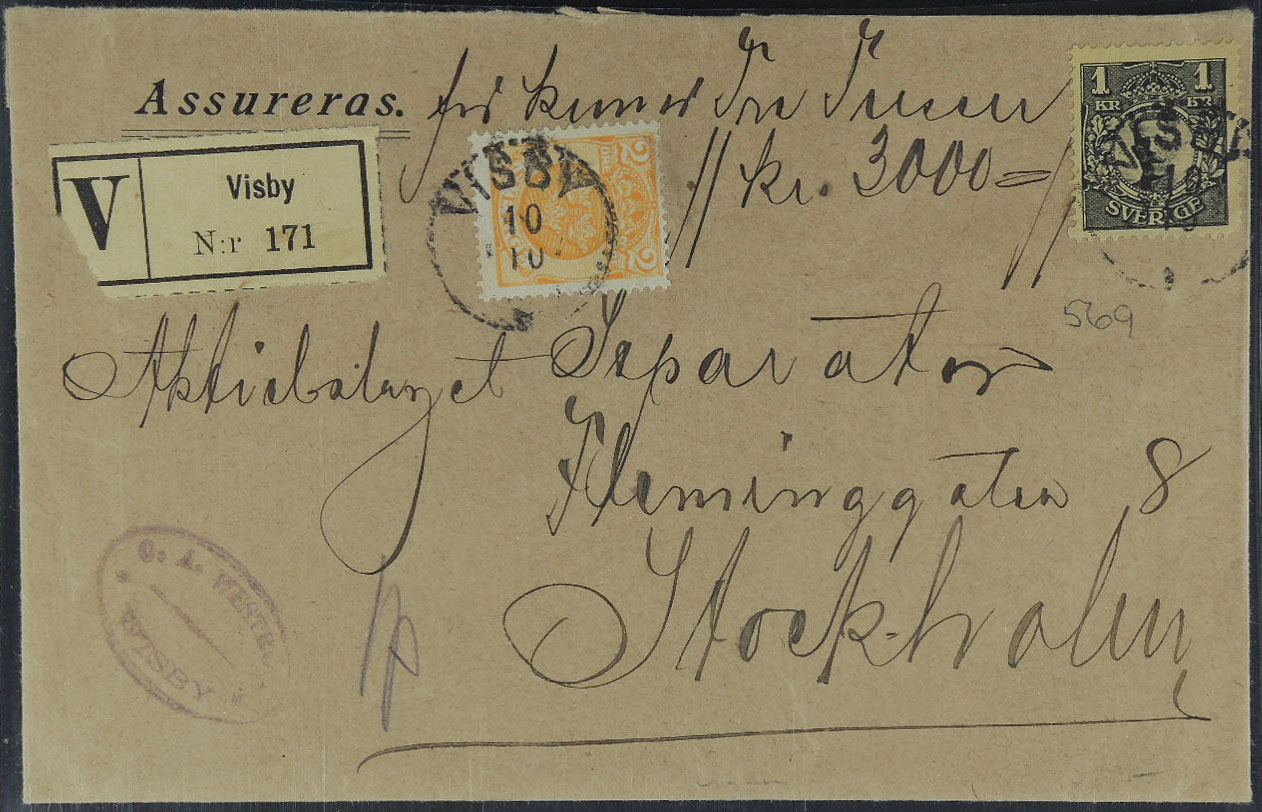 Assureras. för kronor Tre Tusen
// kr. 3000= //
V Visby
N:r 171
VISBY
10
10
2 2
1 KR 1 KR
SVERIGE
VISBY
10
569
Aktiebolaget Separator
Fleminggatan 8
Stockholm
O. A. WESTE
WISBY